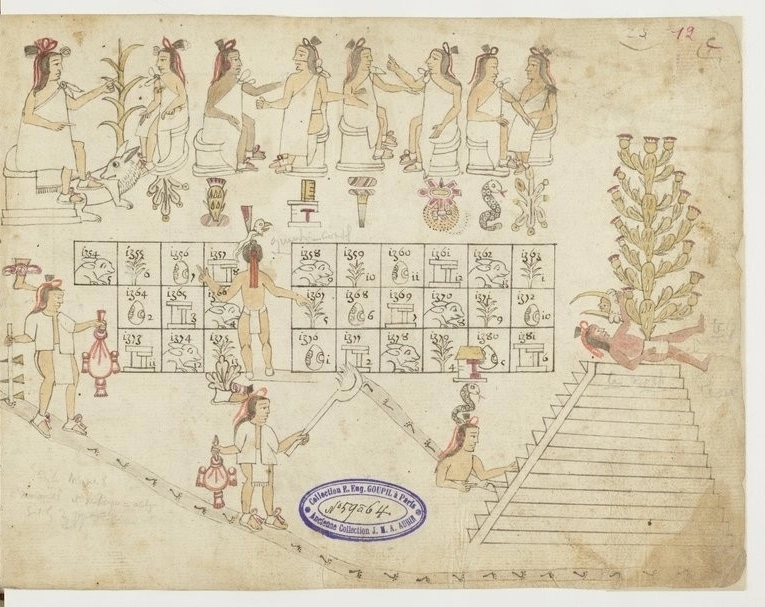 12
1354 1355 6 1356 7 1357 8 1358 1359 10 1360 11 1361 12 1362 1363 1
1364 2 1365 3 1366 1367 5 1368 6 1369 7 1370 1371 9 1372 10
1373 11 1374 1375 1376 1 1377 2 1378 1379 4 1380 5 1381 6
Collection E. Eug. GOUPIL à Paris
Ancienne Collection J. M. A. AUBIN